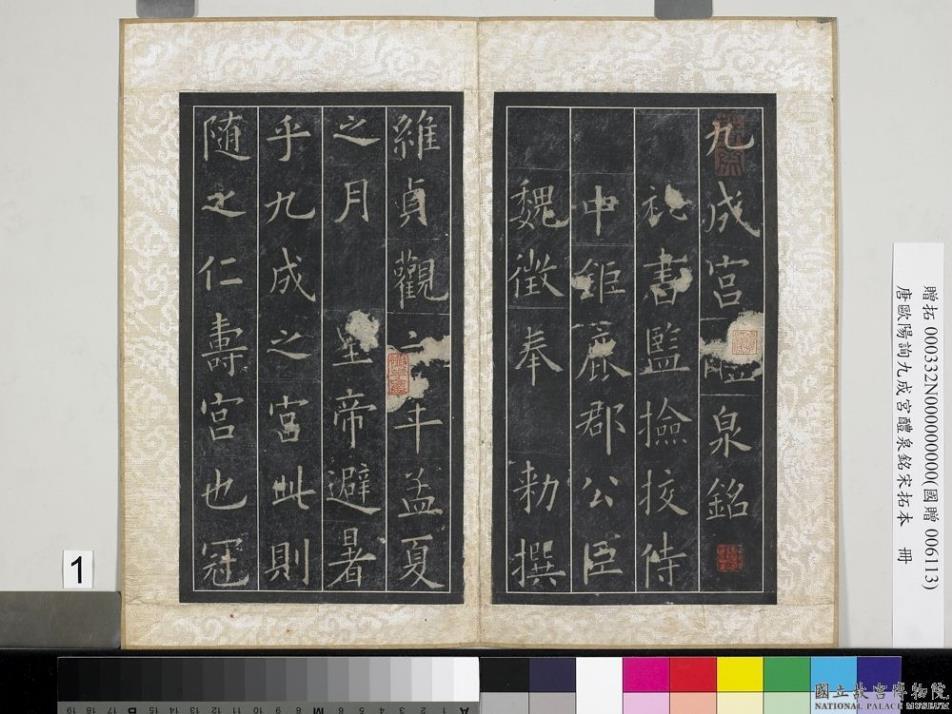 九成宮醴泉銘
祕書監撿挍侍
中鉅鹿郡公臣
魏徵奉勑撰
維貞觀六年孟夏
之月皇帝避暑
乎九成之宮此則
随之仁壽宮也冠
贈拓 000332N000000000(國贈 006113)
唐歐陽詢九成宮醴泉銘宋拓本 冊
1
國立故宮博物院
NATIONAL PALACE MUSEUM